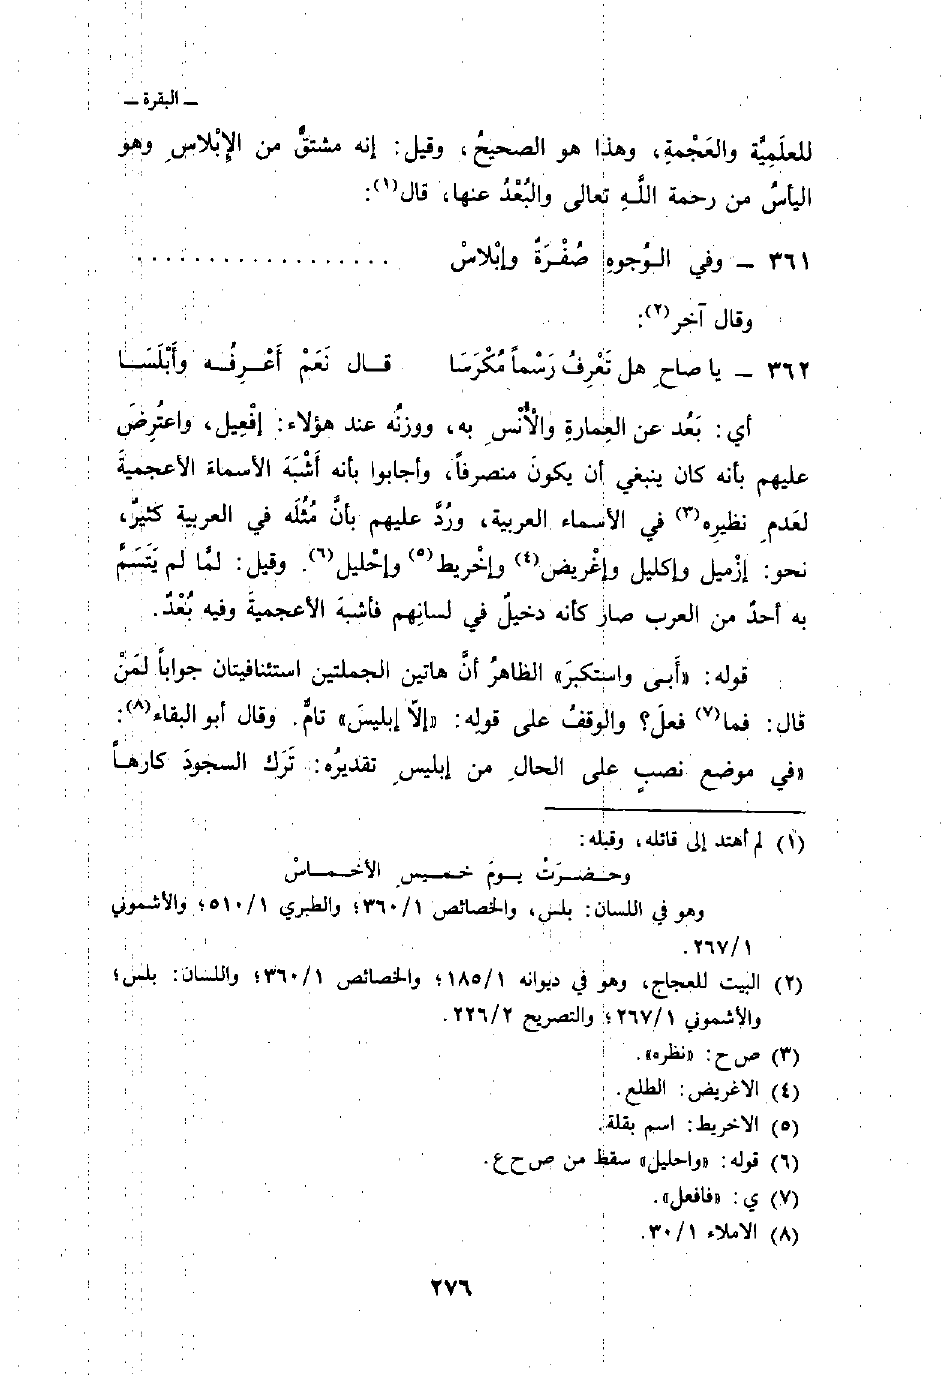 ـ البقرة ـ
للعلَمِيَّة والعَجْمةِ، وهذا هو الصحيحُ، وقيل: إنه مشتقٌّ من الإِبْلاسِ وهو
اليأسُ من رحمة اللَّـهِ تعالى والبُعْدُ عنها، قال(١):
٣٦١ ـ وفي الـوُجوهِ صُفْـرَةٌ وإبْلاسْ . . . . . . . . . . . . . . . . . .
وقال آخر(٢):
٣٦٢ ـ يا صاحِ هل تَعْرِفُ رَسْماً مُكْرَسَا قـال نَعَمْ أَعْـرِفُـه وأَبْلَسَـا
أي: بَعُد عن العِمارةِ والْأُنْسِ به، ووزنُه عند هؤلاء: إفْعِيل، واعتُرِضَ
عليهم بأنه كان ينبغي أن يكونَ منصرفاً، وأجابوا بأنه أَشْبَهَ الأسماءَ الأعجميةَ
لعَدمِ نظيرِه(٣) في الأسماء العربية، ورُدَّ عليهم بأنَّ مُثُلَه في العربية كثيرٌ،
نحو: إزْميل وإكليل وإغْريض(٤) وإخْريط(٥) وإحْليل(٦). وقيل: لمَّا لم يَتَسَمَّ
به أحدٌ من العرب صار كأنه دخيلٌ في لسانِهم فأشبهَ الأعجميةَ وفيه بُعْدٌ.
قوله: «أَبـى واستكبرَ» الظاهرُ أنَّ هاتين الجملتين استئنافيتان جواباً لمَنْ
قال: فما(٧) فعلَ؟ والوقفُ على قولِه: «إلّا إبليسَ» تامٌّ. وقال أبو البقاء(٨):
«في موضع نصبٍ على الحالِ من إبليسِ تقديرُه: تَرَك السجودَ كارهـاً
(١) لم أهتد إلى قائله، وقبله:
وحـضـرَتْ يـومَ خـمـيـسِ الأخـمـاسْ
وهو في اللسان: بلس، والخصائص ٣٦٠/١؛ والطبري ٥١٠/١؛ والأشموني
٢٦٧/١.
(٢) البيت للعجاج، وهو في ديوانه ١٨٥/١؛ والخصائص ٣٦٠/١؛ واللسان: بلس؛
والأشموني ٢٦٧/١؛ والتصريح ٢٢٦/٢.
(٣) ص ح: «نظره».
(٤) الاغريض: الطلع.
(٥) الاخريط: اسم بقلة.
(٦) قوله: «واحليل» سقط من ص ح ع.
(٧) ي: «فافعل».
(٨) الاملاء ٣٠/١.
٢٧٦